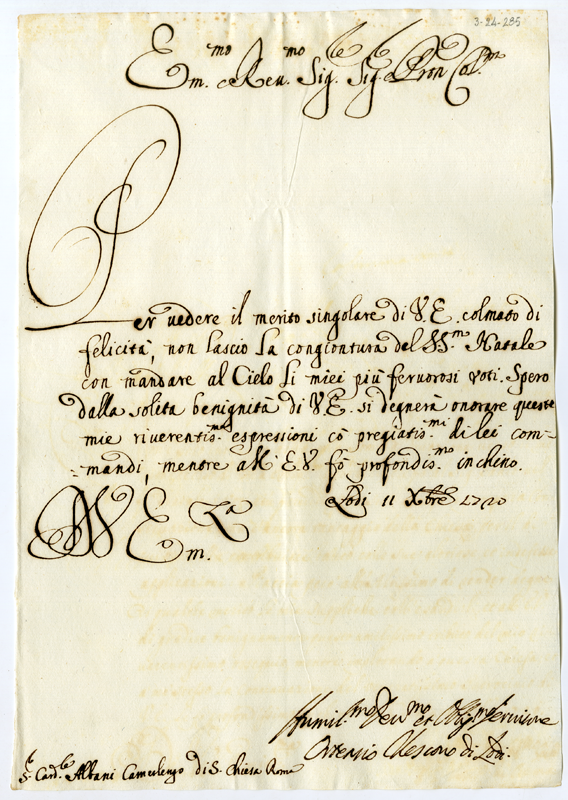 3-24-285
Em.mo e Reu.mo Sig.re Sig.re e Pron Col.mo
Per uedere il merito singolare di V.E. colmato di
felicità, non lascio la congiontura del SS.mo Natale
con mandare al Cielo li miei più feruorosi voti. Spero
dalla solita benignità di V.E. si degnerà onorare queste
mie riuerentis.me espressioni cō pregiatis.mi di lei com-
mandi, mentre all' E.V. fò profondis.mo inchino.
Lodi 11 Xbre 1720
Em.
Humil.mo Deu.mo et Oblig.mo Seruitore
Ortensio Vescouo di Lodi
S. Card.le Albani Camerlengo di S. Chiesa Roma